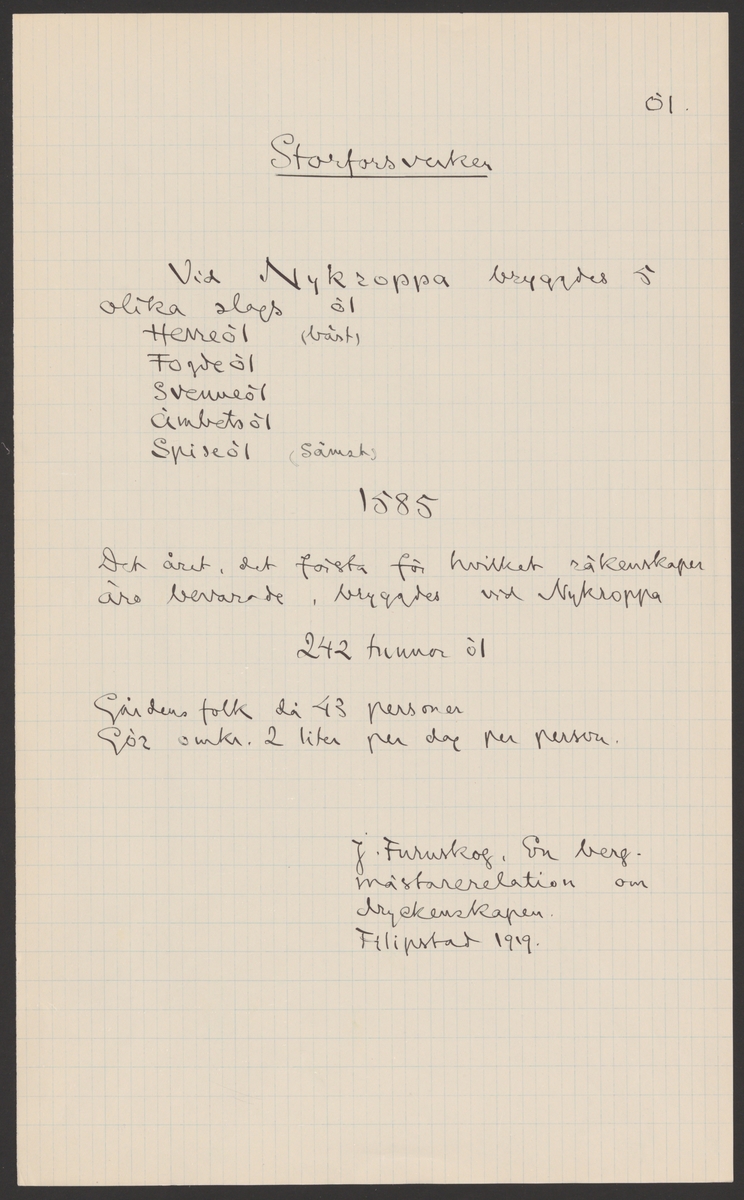 Öl.
Storforsverken
Vid Nykroppa bryggdes 5
olika slags öl
Herreöl (bäst)
Fogdeöl
Svenneöl
Ämbetsöl
Spiseöl (sämst)
1585
Det året, det första för hvilket räkenskaper
äro bevarade, bryggdes vid Nykroppa
242 tunnor öl
Gårdens folk då 43 personer
Gör omkr. 2 liter per dag per person.
J. Furuskog, En berg-
mästarerelation om
dryckenskapen.
Filipstad 1919.